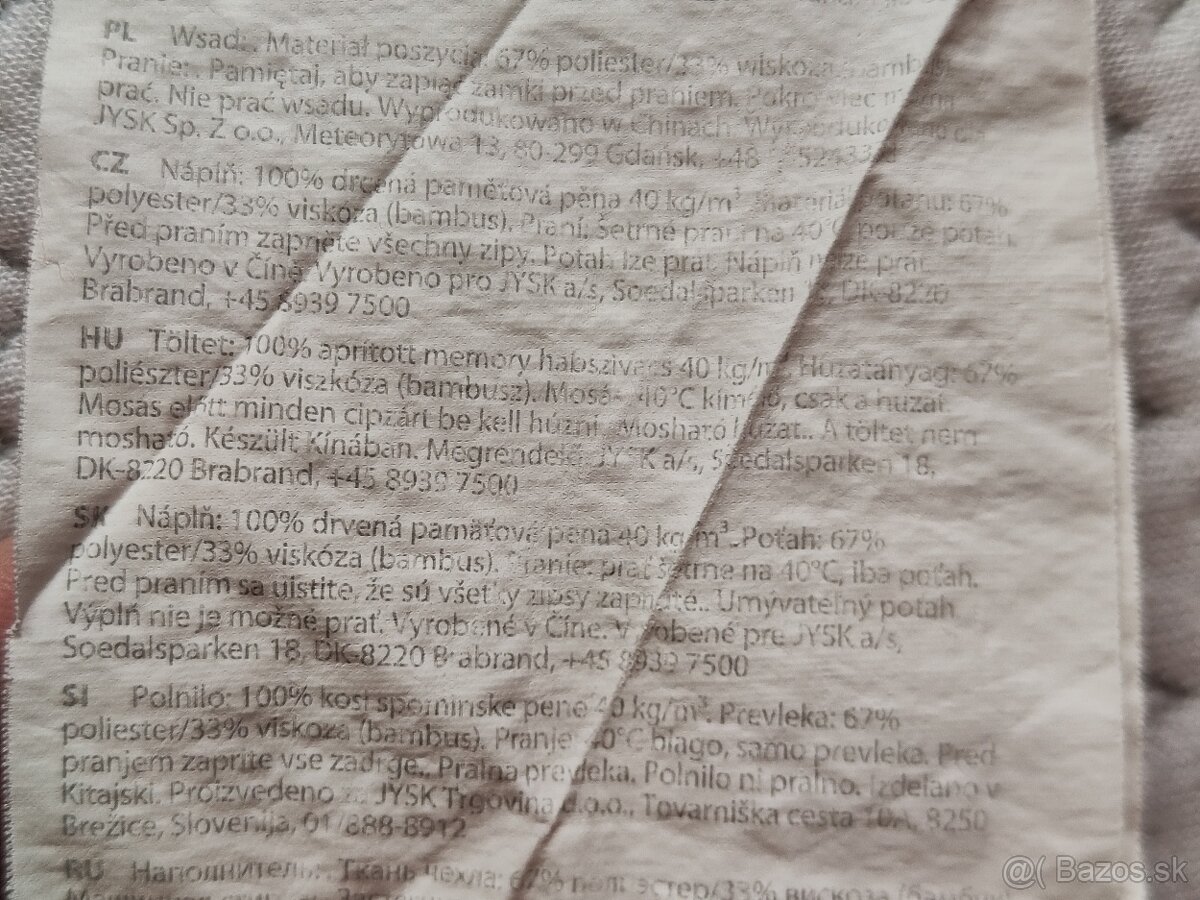 PL Wsad: . Materiał poszycia: 67% poliester/33% wiskoza
Pranie: . Pamiętaj, aby zapiąć zamki przed praniem. Pokrowiec można
prać. Nie prać wsadu. Wyprodukowano w Chinach. Wyprodukowano dla
JYSK Sp. Z o.o., Meteorytowa 13, 80-299 Gdańsk, +48
CZ Náplň: 100% drcená paměťová pěna 40 kg/m³ Materiál potahu: 67%
polyester/33% viskóza (bambus). Praní: Šetrné praní na 40°C pouze potah.
Před praním zapněte všechny zipy. Potah lze prát. Náplň nelze prát.
Vyrobeno v Číně. Vyrobeno pro JYSK a/s, Soedalsparken 18, DK-8220
Brabrand, +45 8939 7500
HU Töltet: 100% aprított memory habszivacs 40 kg/m³ Huzatanyag: 67%
poliészter/33% viszkóza (bambusz). Mosás 40°C kímélő, csak a huzat.
Mosás előtt minden cipzárt be kell húzni. Mosható huzat.. A töltet nem
mosható. Készült Kínában. Megrendelő: JYSK a/s, Soedalsparken 18,
DK-8220 Brabrand, +45 8939 7500
SK Náplň: 100% drvená pamäťová pena 40 kg/m³. Poťah: 67%
polyester/33% viskóza (bambus). Pranie: prať šetrne na 40°C, iba poťah.
Pred praním sa uistite, že sú všetky zipsy zapnuté.. Umývateľný poťah
Výplň nie je možné prať. Vyrobené v Číne. Vyrobené pre JYSK a/s,
Soedalsparken 18, DK-8220 Brabrand, +45 8939 7500
SI Polnilo: 100% kosi spominske pene 40 kg/m³. Prevleka: 67%
poliester/33% viskoza (bambus). Pranje: 40°C blago, samo prevleka. Pred
pranjem zaprite vse zadrge.. Pralna prevleka. Polnilo ni pralno. Izdelano v
Kitajski. Proizvedeno za JYSK Trgovina d.o.o., Tovarniška cesta 10A, 8250
Brežice, Slovenija, 01/888-8912
RU Наполнитель: Ткань чехла: 67% полиэстер/33% вискоза (бамбук)
@( Bazos.sk